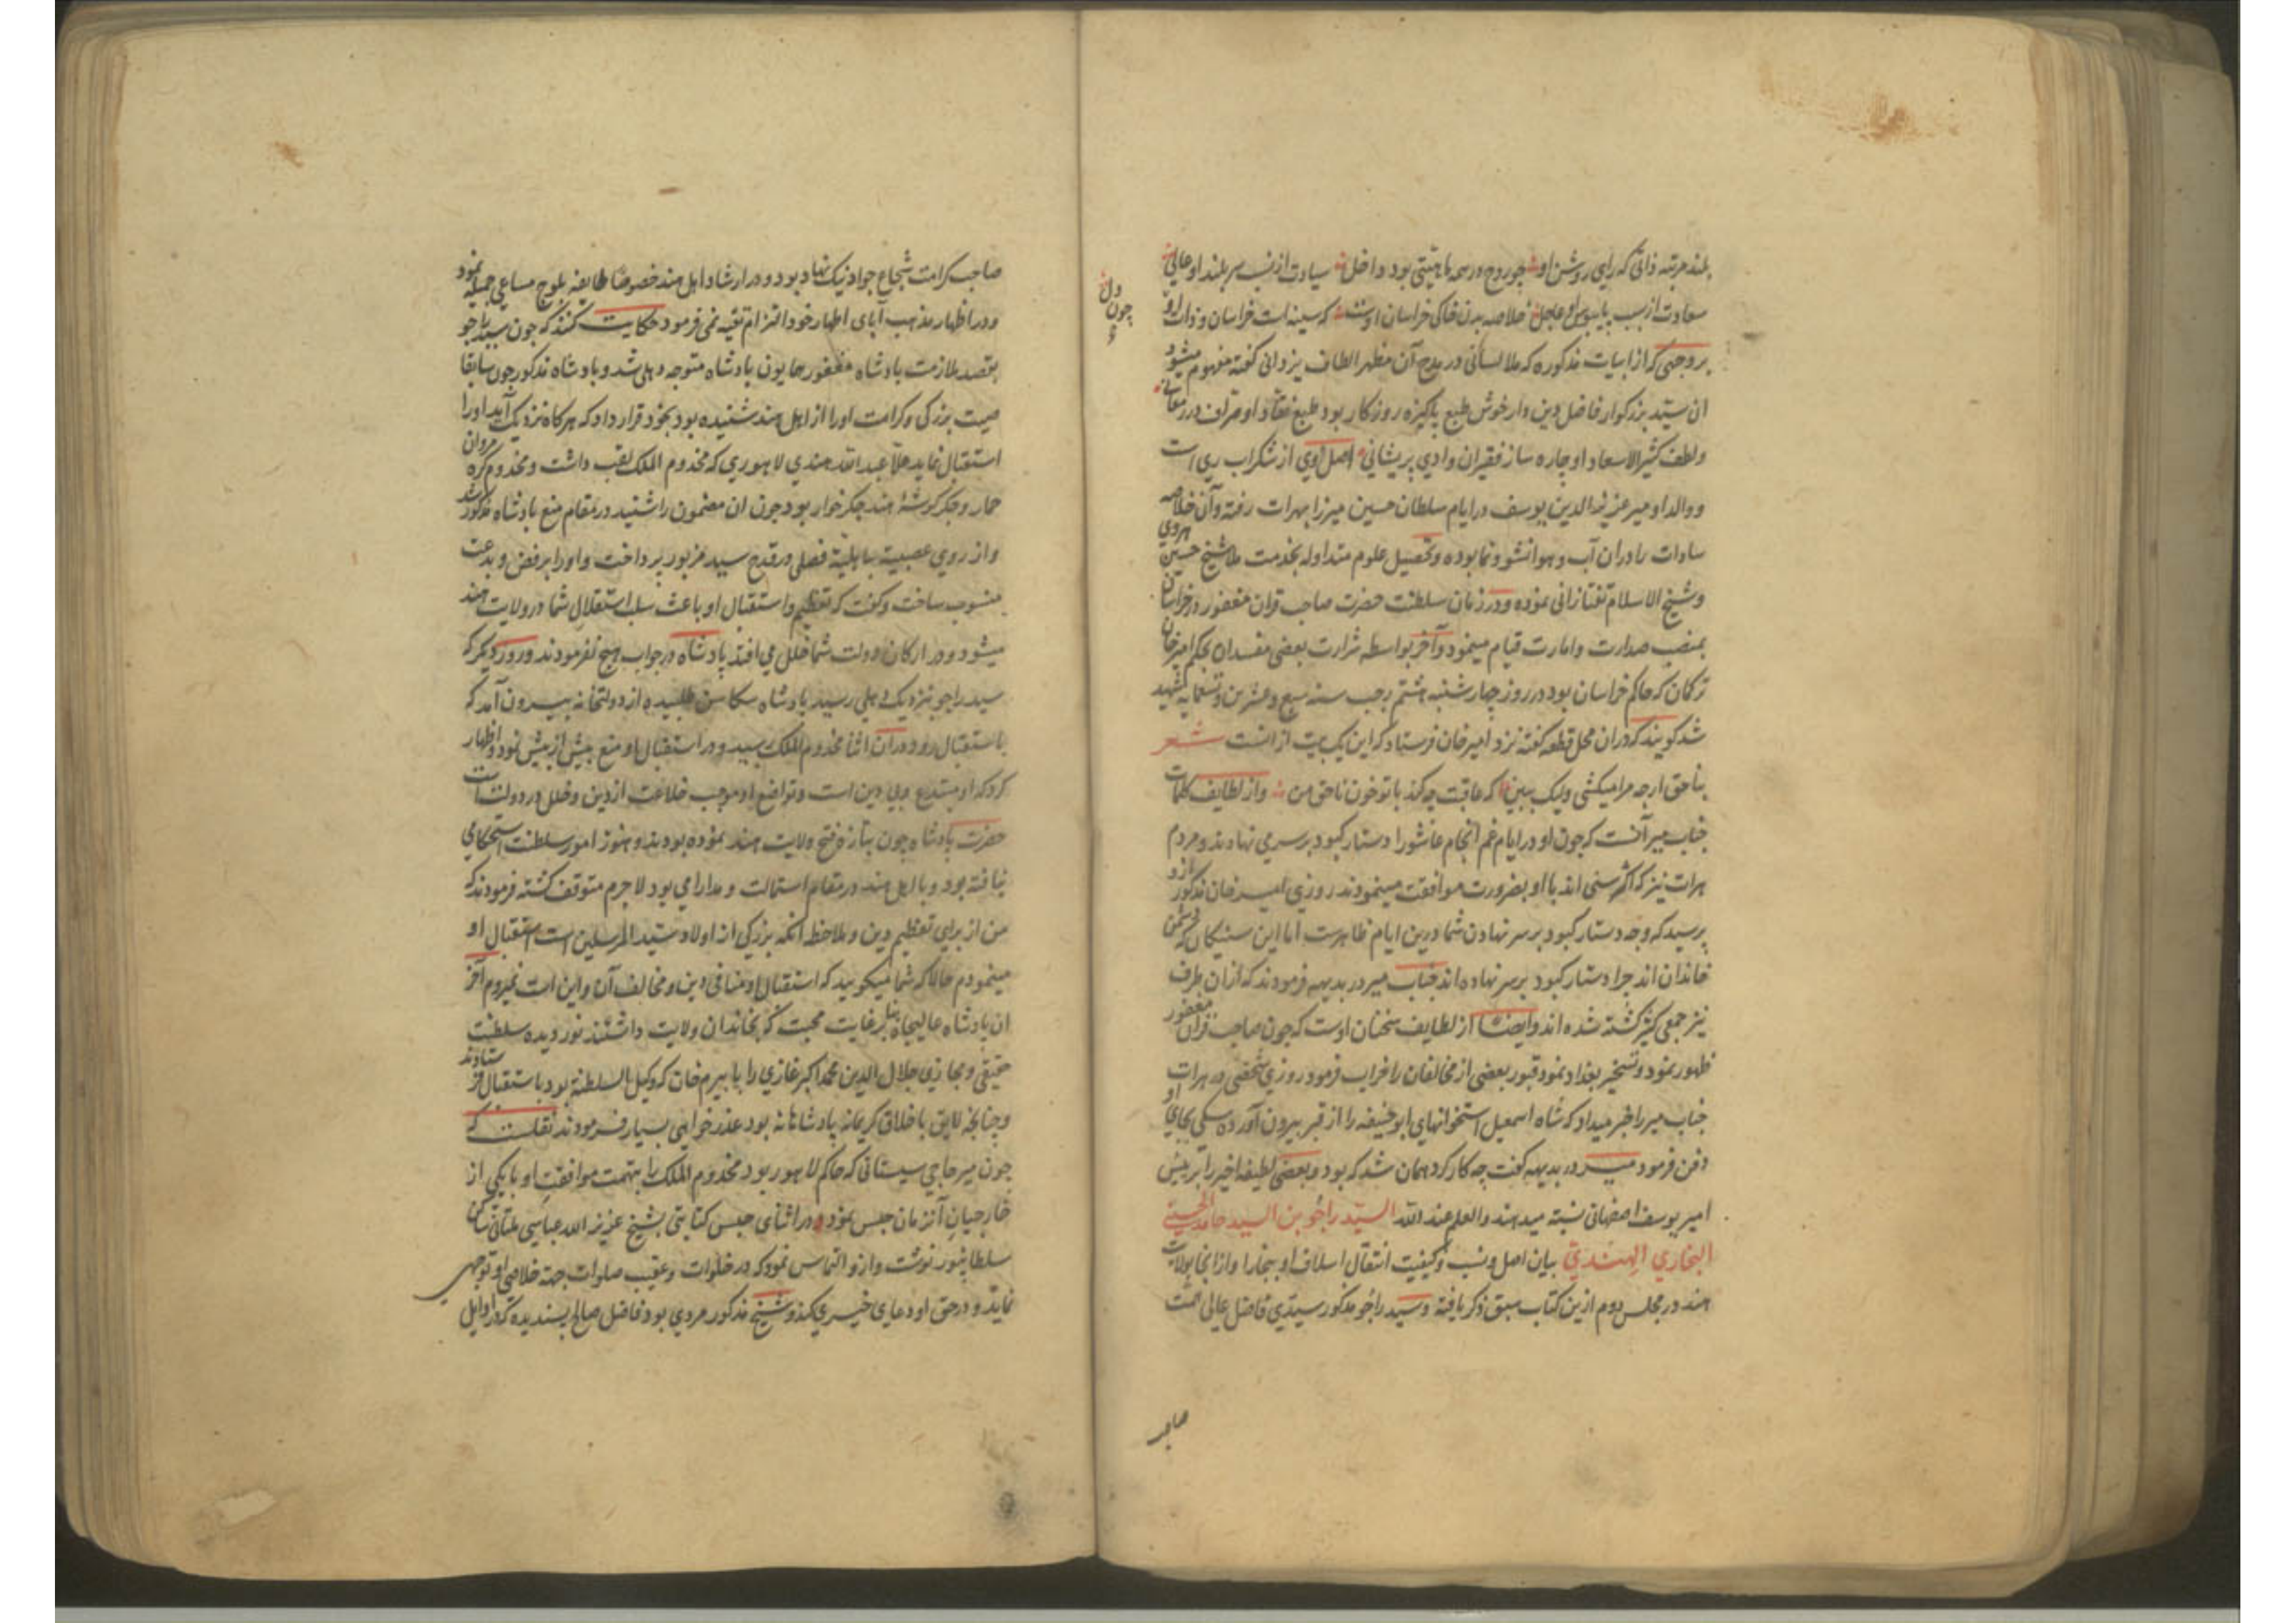 بلند مرتبه ذاتی که رای روشن او چو روح در همه ماهیتی بود داخل سیادت از نسب سربلند او عالی
سعادت از سبب پایبوس او عاجل خلاصه بدن خاکی خراسان اوست که سینه است خراسان و ذات او
چون دل
بر وجهی که از ابیات مذکوره که ملا لسانی در مدح آن مظهر الطاف یزدانی گفته مفهوم میشود
ان سید بزرکوار فاضل دین دار خوش طبع پاکیزه روزکار بود طبع نقاد او صراف در معانی
ولطف کثیر الاسعاد او چاره ساز فقیران وادی پریشانی اصل اوی از شکراب ری است
ووالد او میر عزیز الدین یوسف در ایام سلطان حسین میرزا بهرات رفته وآن خلاصه
سادات را دران آب و هوا نشو و نما بوده و تحصیل علوم متداوله بخدمت ملا شیخ حسین هروی
وشیخ الاسلام تفتازانی نموده ودر زمان سلطنت حضرت صاحب قران مغفور در خراسان
بمنصب صدارت وامارت قیام مینمود وآخر بواسطه شرارت بعضی مفسدان بحکم امیر خان
ترکمان که حاکم خراسان بود در روز چهارشنبه هشتم رجب سنه سبع وعشرین وتسعمایه شهید
شد کویند که دران محل قطعه گفته نزد امیر خان فرستاد که این یک بیت از انست شعر
بناحق ارچه مرا میکشی ولیک ببین که عاقبت چه کند با تو خون ناحق من واز لطایف کلمات
جناب میر آنست که چون او در ایام غم انجام عاشورا دستار کبود بر سر می نهادند ومردم
هرات نیز که اکثر سنی اند با او بضرورت موافقت مینمودند روزی امیر خان مذکور ازو
پرسید که وجه دستار کبود بر سر نهادن شما درین ایام ظاهرست اما این سنیکان که دشمن
خاندان اند چرا دستار کبود بر سر نهاده اند جناب میر در بدیهه فرمودند که ازان طرف
نیز جمعی کثیر کشته شده اند وایضا از لطایف سخنان اوست که چون صاحب قران مغفور
ظهور نمود وتسخیر بغداد نمود قبور بعضی از مخالفان را خراب فرمود روزی شخصی در هرات
جناب میر را خبر میداد که شاه اسمعیل استخوانهای ابو حنیفه را از قبر بیرون آورده سکی بجای او
دفن فرمود میر در بدیهه کفت چه کار کرد همان شد که بود وبعضی لطیفه اخیر را بر میر
امیر یوسف اصفهانی نسبت میدهند والعلم عند الله السید راجو بن السید حامد الحسینی
البخاری الهندی بیان اصل ونسب وکیفیت انتقال اسلاف او ببخارا وازانجا بولایت
هند در مجلس دوم ازین کتاب سبق ذکر یافته وسید راجو مذکور سیدی فاضل عالی همت
صاحب
صاحب کرامت شجاع جواد نیک نهاد بود ودر ارشاد اهل هند خصوصا طایفه بلوچ مساعی جمیله نمود
ودر اظهار مذهب آبای اطهار خود التزام تقیه نمی فرمود حکایت کنند که چون سید راجو
بقصد ملازمت پادشاه مغفور همایون پادشاه متوجه دهلی شد وپادشاه مذکور چون سابقا
صیت بزرکی وکرامت اورا از اهل هند شنیده بود بخود قرار داد که هرکاه نزدیک آید اورا
استقبال نماید ملا عبد الله هندی لاهوری که مخدوم الملک لقب داشت ومخدوم کره مروان
حمار وجکر کوشه هند جکر خوار بود چون ان مضمون را شنید در مقام منع پادشاه مذکور شد
واز روی عصبیت جاهلیة فصلی در قدح سید مزبور پرداخت واورا برفض وبدعت
منسوب ساخت وکفت که تعظیم واستقبال او باعث سلب استقلال شما در ولایت هند
میشود ودر ارکان دولت شما خلل می افتد پادشاه در جواب هیچ نفرمودند وروز دیکر که
سید راجو نزدیک دهلی رسید پادشاه سکاسن طلبیده از دولتخانه بیرون آمد که
باستقبال رود دران اثنا مخدوم الملک رسید ودر استقبال او منع بیش از پیش نمود واظهار
کرد که او مبتدع وبی دین است وتواضع او موجب خلاعت از دین وخلل در دولت است
حضرت پادشاه چون بتازه فتح ولایت هند نموده بودند وهنوز امور سلطنت استحکامی
نیافته بود وبا اهل هند در مقام استمالت ومدارا می بود لا جرم متوقف کشته فرمودند که
من از برای تعظیم دین وملاحظه آنکه بزرکی از اولاد سید المرسلین است استقبال او
مینمودم حالا که شما میکویید که استقبال او منافی دین ومخالف آن واین است نمیروم آخر
ان پادشاه عالیجاه بنابر غایت محبت که بخاندان ولایت داشتند نور دیده سلطنت
حقیقی ومجازی جلال الدین محمد اکبر غازی را با بیرم خان که وکیل السلطنة بود باستقبال فرستادند
وچنانچه لایق باخلاق کریمانه پادشاهانه بود عذر خواهی بسیار فرمودند نقلست که
چون میر حاجی سیستانی که حاکم لاهور بود مخدوم الملک را بتهمت موافقت او با یکی از
خارجیان آنزمان حبس نمود در اثنای حبس کتابتی بشیخ عزیز الله عباسی ملتانی ساکن
سلطانپور نوشت وازو التماس نمود که در خلوات وعقیب صلوات جهة خلاصی او توجهی
نماید ودر حق او دعای خیری کند وشیخ مذکور مردی بود فاضل صالح پسندیده که در اوایل